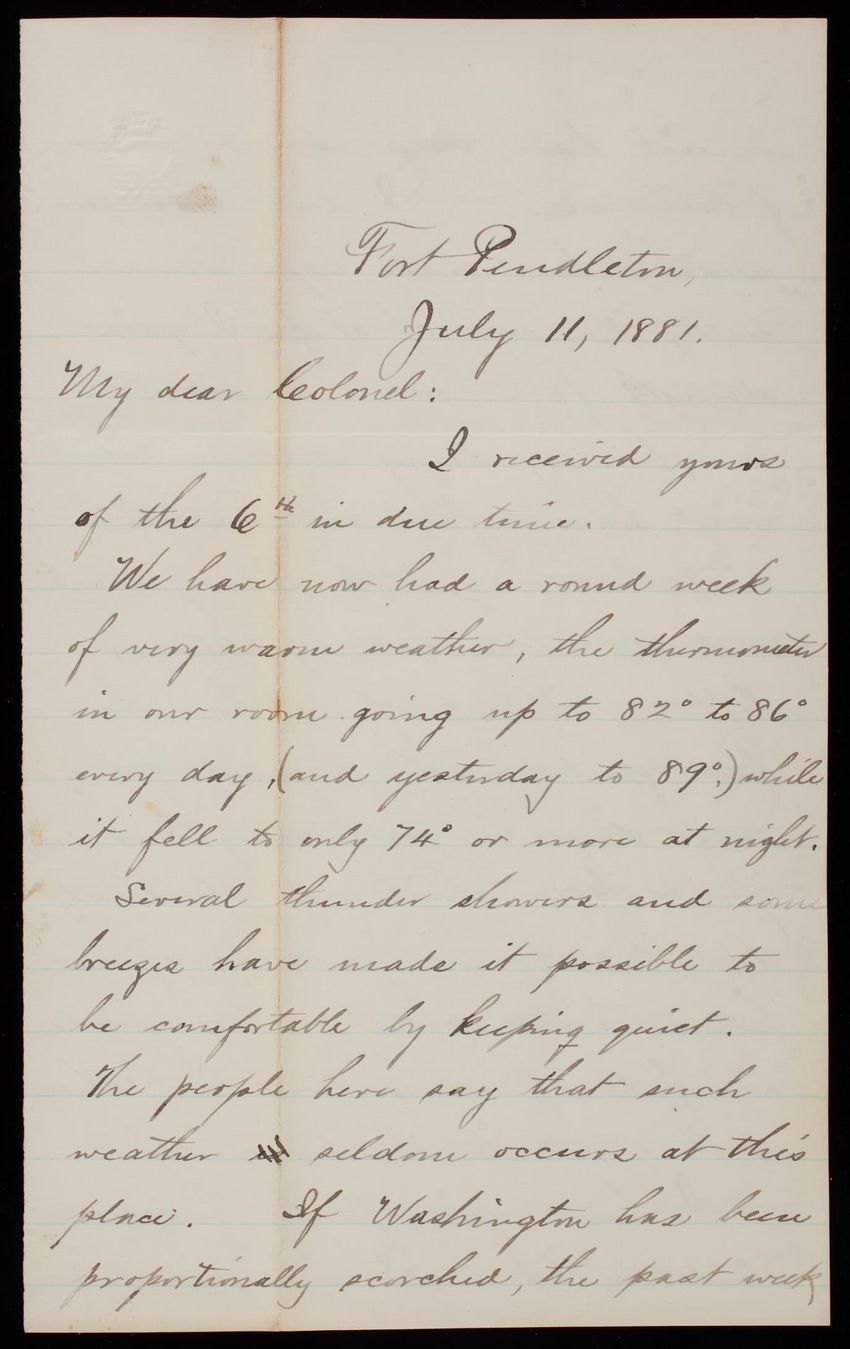 Fort Pendleton,
July 11, 1881.
My dear Colonel:
I received yours
of the 6th in due time.
We have now had a round week
of very warm weather, the thermometer
in our room going up to 82° to 86°
every day, (and yesterday to 89°,) while
it fell to only 74° or more at night.
Several thunder showers and some
breezes have made it possible to
be comfortable by keeping quiet.
The people here say that such
weather seldom occurs at this
place. If Washington has been
proportionally scorched, the past week